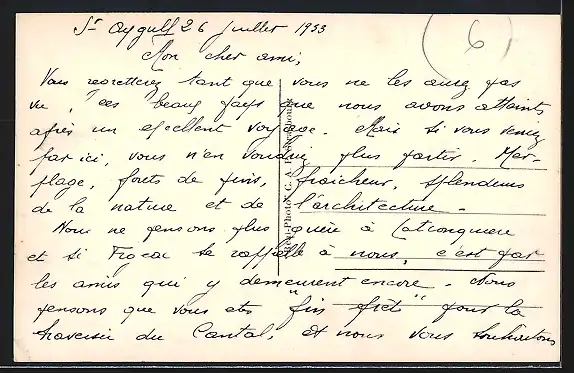 St Aygulf 26 Juillet 1953
6
Mon cher ami,
Vous regretterez tant que vous ne les aurez pas
vu, ces beaux pays que nous avons atteints
après un excellent voyage. Mais si vous veniez
par ici, vous n'en voudriez plus partir. Mer-
plage, forêts de pins, fraîcheur, splendeurs
de la nature et de l'architecture.
Nous ne pensons plus guère à
et si se rappelle à nous, c'est par
les amis qui y demeurent encore. Nous
pensons que vous êtes "fin prêts" pour la
traversée du Cantal, et nous vous souhaitons